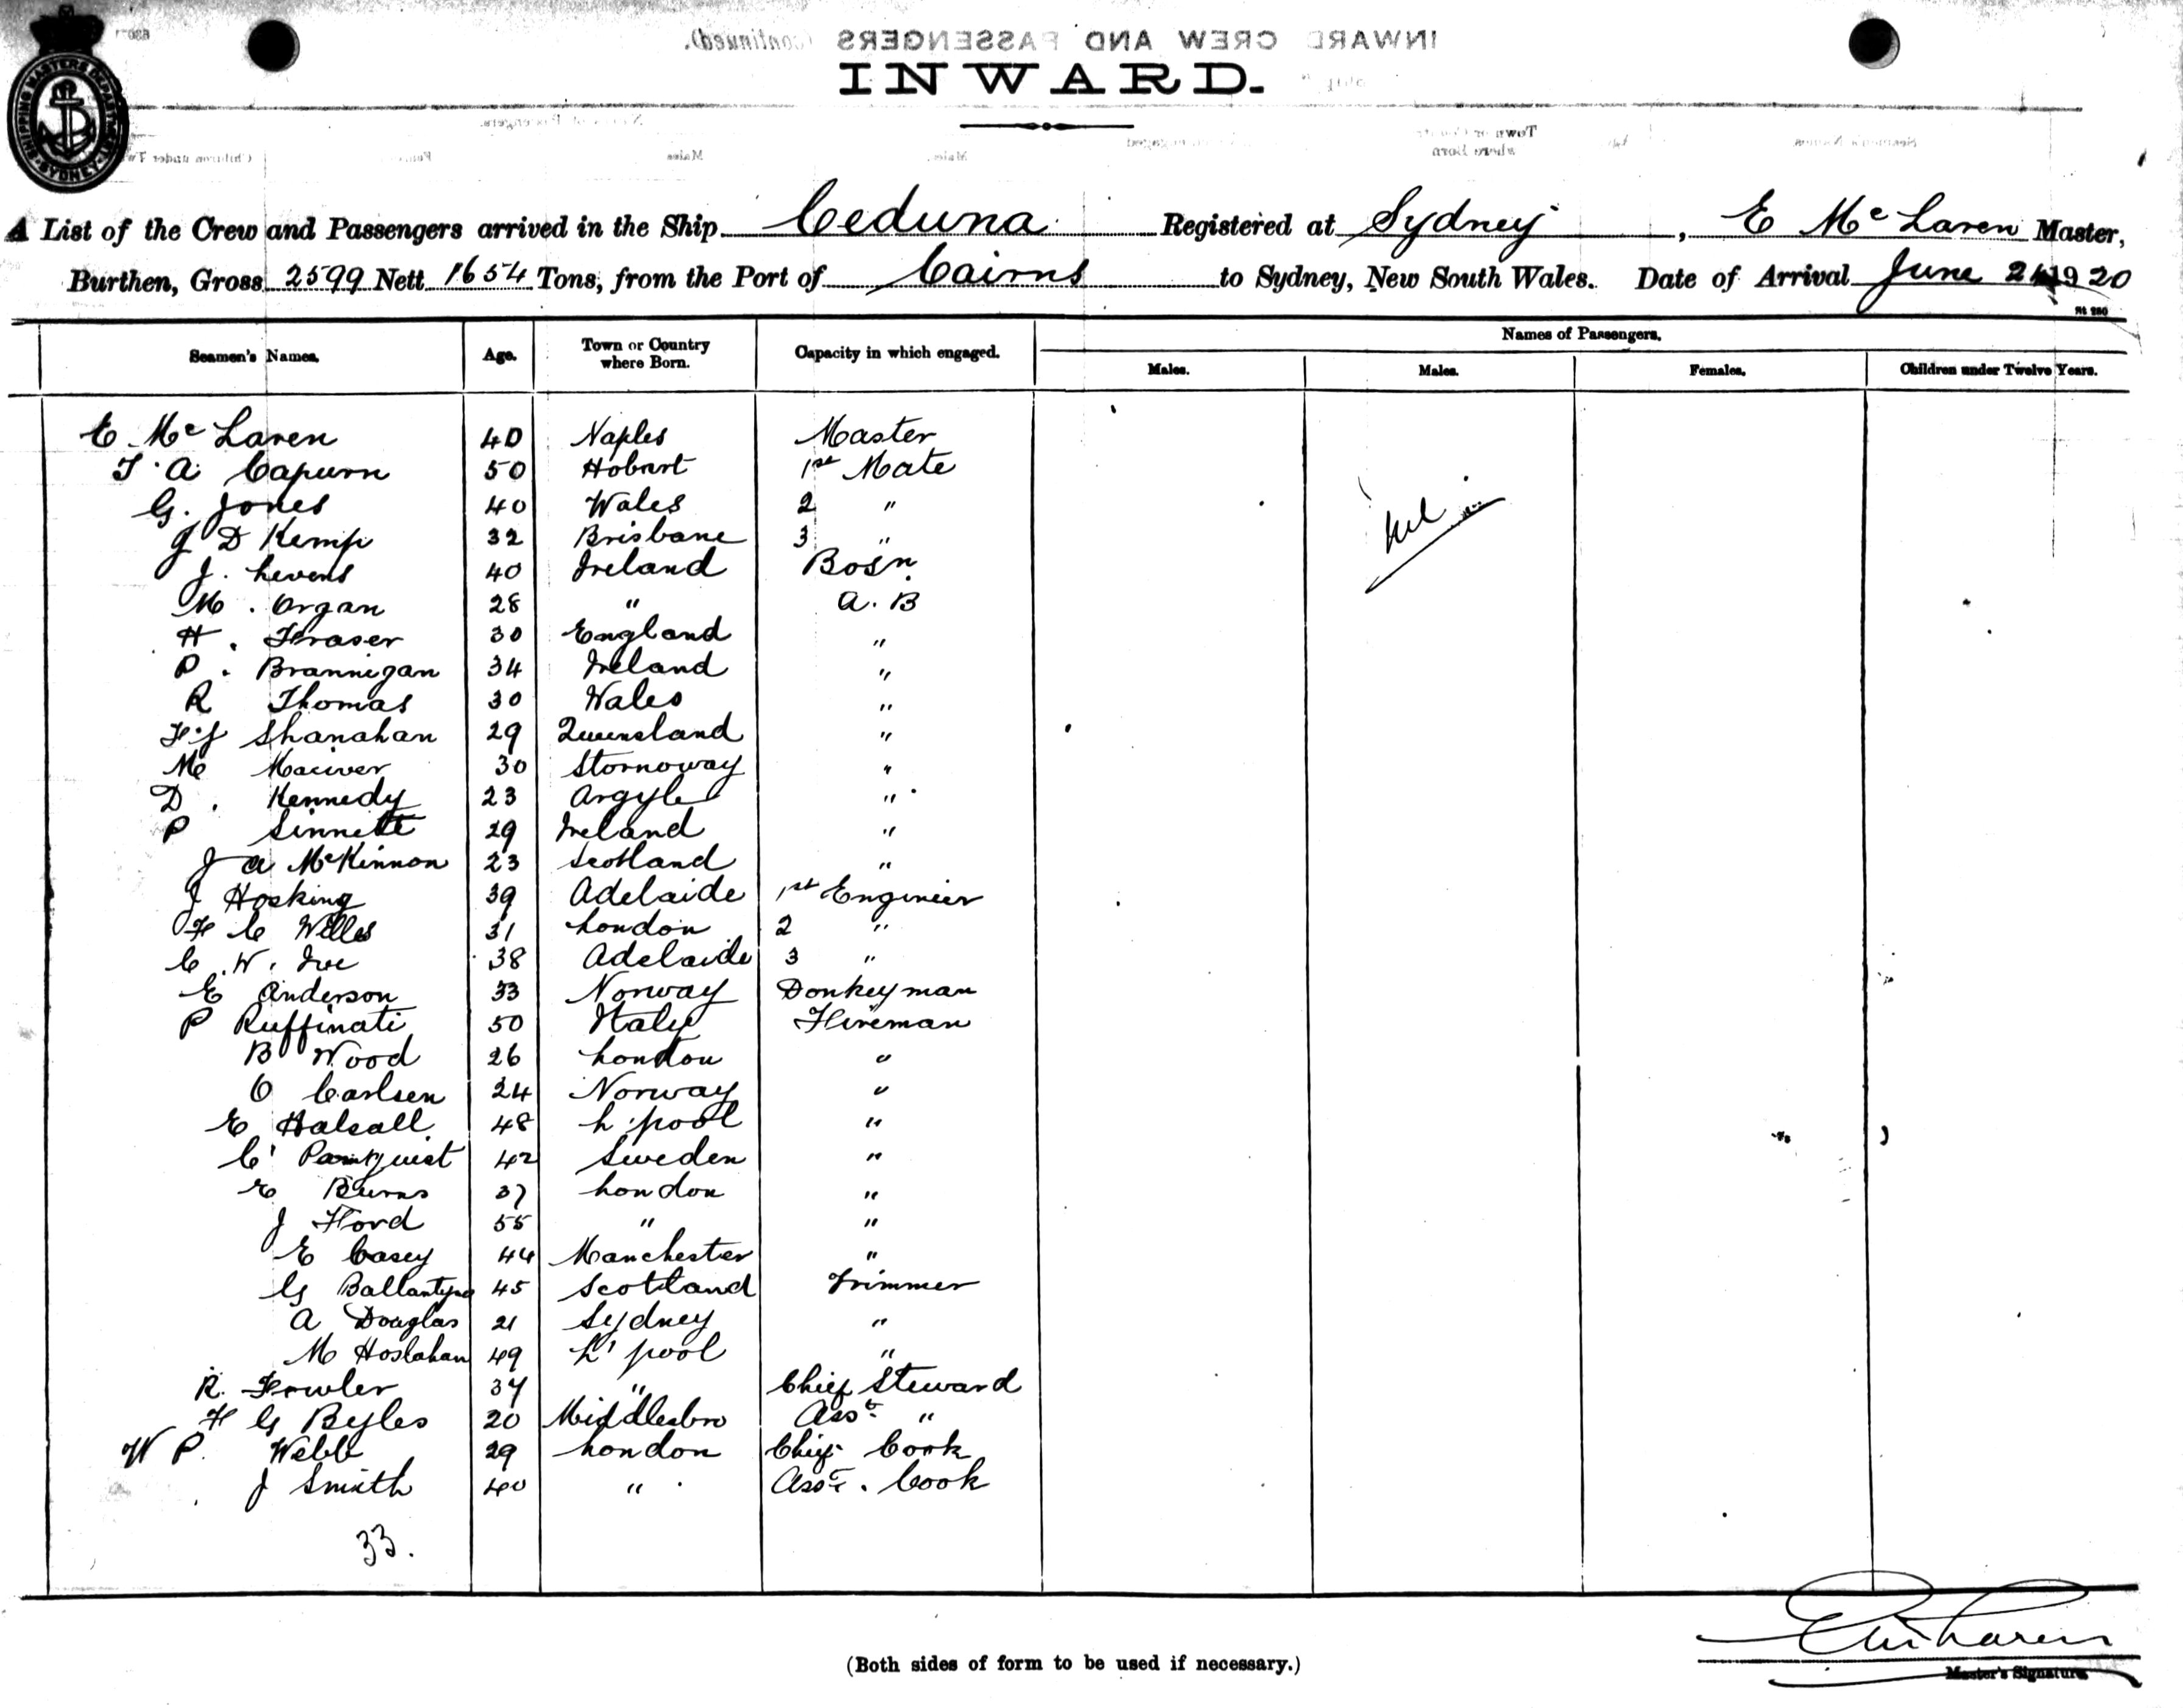 INWARD CREW AND PASSENGERS (Continued).
INWARD.
SHIPPING MASTERS DEPARTMENT SYDNEY
A List of the Crew and Passengers arrived in the Ship Ceduna Registered at Sydney, E McLaren Master,
Burthen, Gross 2599 Nett 1654 Tons, from the Port of Cairns to Sydney, New South Wales. Date of Arrival June 24 1920
Seamen's Names. Age. Town or Country where Born. Capacity in which engaged. Names of Passengers.
Males. Males. Females. Children under Twelve Years.
E McLaren 40 Naples Master
T. A. Capurn 50 Hobart 1st Mate
G. Jones 40 Wales 2 "
J D Kemp 32 Brisbane 3 "
J. Levens 40 Ireland Bosn.
M. Organ 28 " A. B
H. Fraser 30 England "
P. Brannigan 34 Ireland "
R Thomas 30 Wales "
F. J Shanahan 29 Queensland "
M Maciver 30 Stornoway "
D. Kennedy 23 Argyle "
P Sinnette 29 Ireland "
J A McKinnon 23 Scotland "
J Hosking 39 Adelaide 1st Engineer
F C Wills 31 London 2 "
C. W. Ive 38 Adelaide 3 "
E Anderson 33 Norway Donkeyman
P Ruffinati 50 Italy Fireman
B Wood 26 London "
O Carlsen 24 Norway "
E Halsall 48 L'pool "
C' 42 Sweden "
E Burns 37 London "
J Ford 55 " "
E Casey 44 Manchester "
G Ballantyne 45 Scotland Trimmer
A Douglas 21 Sydney "
M 49 L'pool "
R. Fowler 37 " Chief Steward
H G Byles 20 Middlesbro Asst. "
W P. Webb 29 London Chief Cook
J Smith 40 " Asst. Cook
33.
(Both sides of form to be used if necessary.)
E McLaren
Master's Signature